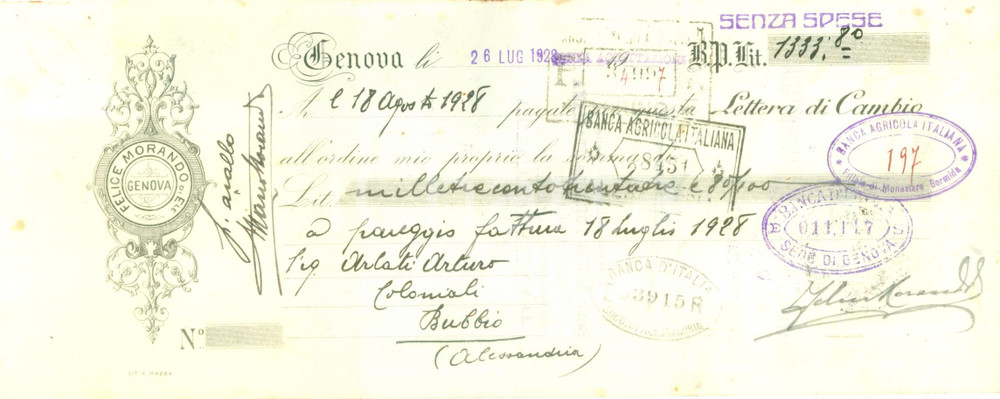 SENZA SPESE
Genova li 26 LUG 1928 19 B.P. Lit. 1333,80
A l 18 Agosto 1928 pagate per questa Lettera di Cambio
all'ordine mio proprio la somma di
Lit. millettrecentotrentatre e 80/100
a pareggio fattura 18 luglio 1928
Sig Arlati Arturo
Coloniali
Bubbio
(Alessandria)
No
FELICE MORANDO DI
GENOVA
BANCA AGRICOLA ITALIANA
BANCA AGRICOLA ITALIANA
197
Filiale di Monastero Bormida
BANCA D'ITALIA
SEDE DI GENOVA
BANCA D'ITALIA
3915R
Felice Morando